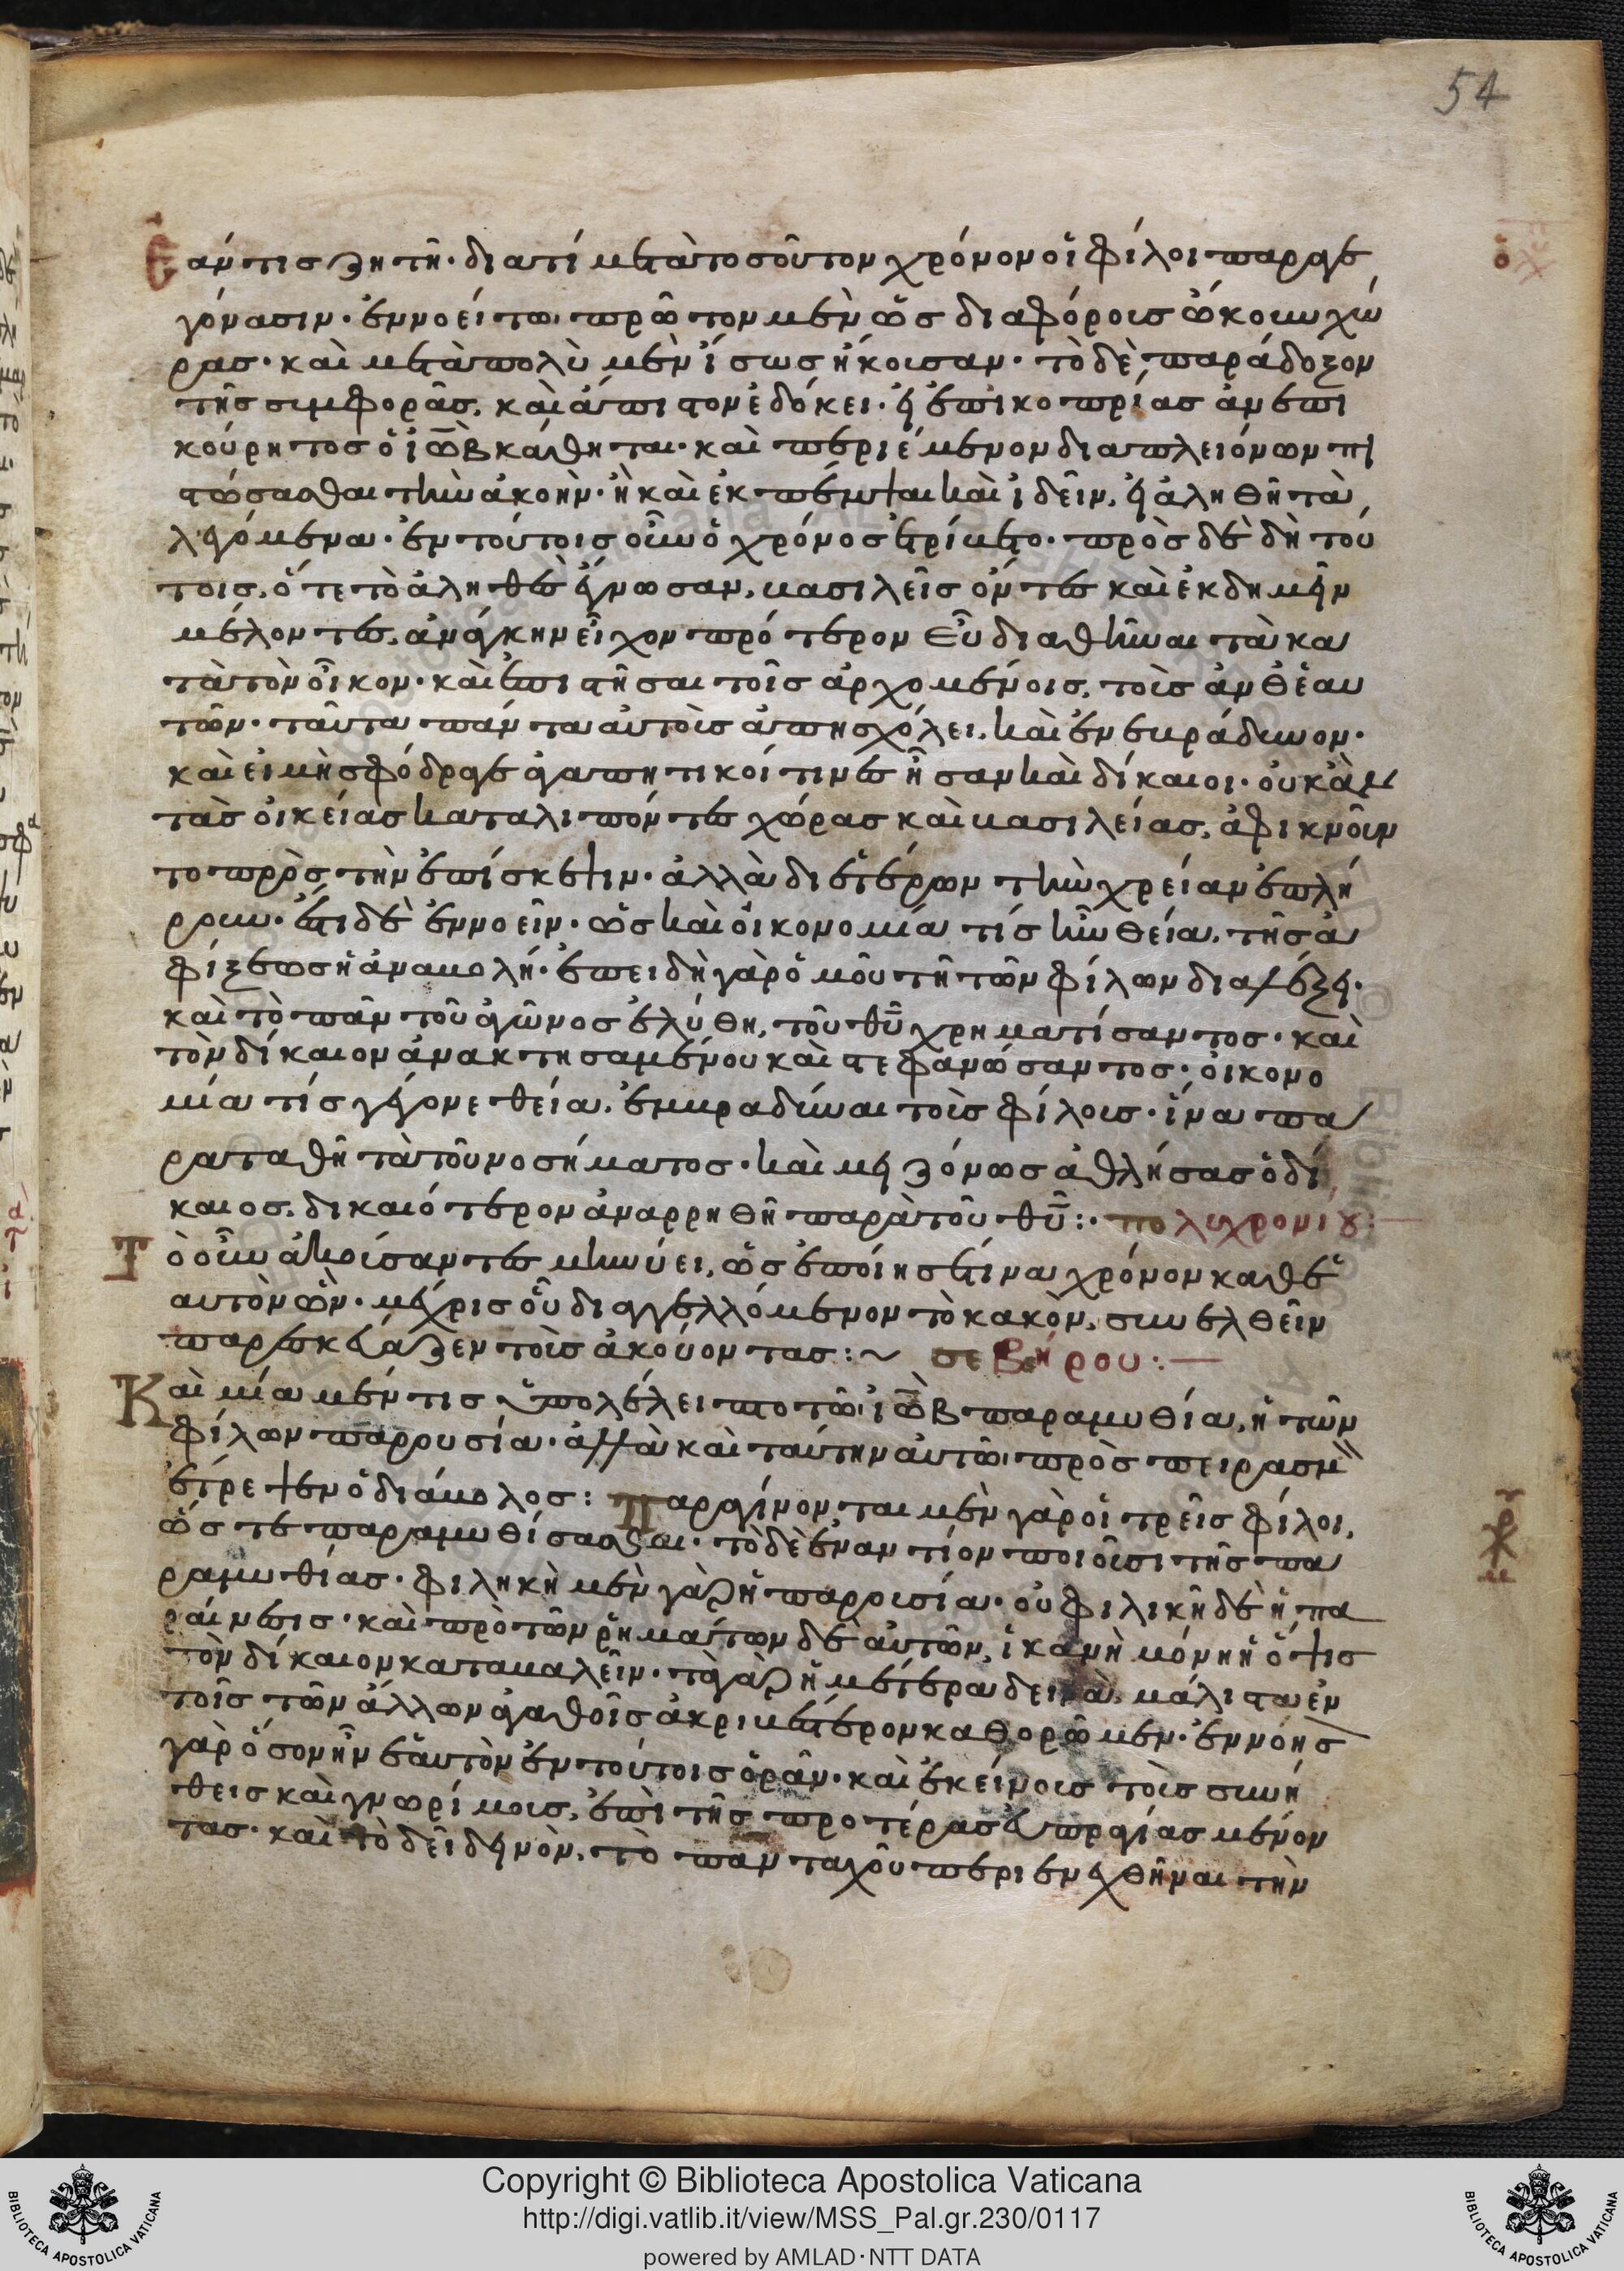 54
Ἐάν τις ζητῆ· διατί μετὰ τοσοῦτον χρόνον οἱ φίλοι παραγε
γόνασιν· ἐννοείτω πρῶτον μὲν ὡς διαφόροις ὤκουν χώ
ρας· καὶ μετὰ πολὺ μὲν ἴσως ἤκουσαν· τὸ δὲ παράδοξον
τῆς συμφορᾶς, καὶ ἄπιστον ἐδόκει· εἰ ἐπὶ κοπρίας ἀνεπι
κούρητος ὁ ἰὼβ κάθηται· καὶ περιέμενον διὰ πλειόνων πι
στώσασθαι τὴν ἀκοὴν· ἢ καὶ ἐκπέμψαι καὶ ἰδεῖν, εἰ ἀληθῆ τὰ
λεγόμενα· ἐν τούτοις οὖν ὁ χρόνος ἐτρίβετο· πρὸς δὲ δὴ τού
τοις, ὅτε τὸ ἀληθὲς ἔγνωσαν, βασιλεῖς ὄντες καὶ ἐκδημεῖν
μέλοντες, ἀνάγκην εἶχον πρότερον εὖ διαθῆναι τὰ κα
τὰ τὸν οἶκον· καὶ ἐπιστῆσαι τοῖς ἀρχομένοις, τοὺς ἀνθ' ἑαυ
τῶν· ταῦτα πάντα αὐτοὺς ἀπησχόλει, καὶ ἐνεβράδυνον·
καὶ εἰ μὴ σφόδρα ἀγαπητικοί τινες ἦσαν καὶ δίκαιοι· οὐκ ἂν
τὰς οἰκείας καταλιπόντες χώρας καὶ βασιλείας, ἀφικνοῦν
το πρὸς τὴν ἐπίσκεψιν· ἀλλὰ δι' ἑτέρων τὴν χρείαν ἐπλή
ρουν· ἔτι δὲ ἐννοεῖν· ὡς καὶ οἰκονομία τίς ἦν θεία, τῆς ἀ
φίξεως ἡ ἀναβολή· ἐπειδὴ γὰρ ὁμοῦ τῆ τῶν φίλων διαλέξει·
καὶ τὸ πᾶν τοῦ ἀγῶνος ἐλύθη, τοῦ θῦ χρηματίσαντος· καὶ
τὸν δίκαιον ἀνακτησαμένου καὶ στεφανώσαντος· οἰκονο
μία τίς γέγονε θεία, ἐμβραδύναι τοὺς φίλους· ἵνα πα
ραταθῆ τὰ τοῦ νοσήματος· καὶ μειζόνως ἀθλήσας ὁ δί
καιος, δικαιότερον ἀναρρηθῆ παρὰ τοῦ θῦ:· πολυχρονίου:
Τὸ οὖν ἀκούσαντες μηνύει, ὡς ἐποίησέ τινα χρόνον καθ' ἑ
αυτὸν ὢν· μέχρις οὗ διαγγελλόμενον τὸ κακὸν, συνελθεῖν
παρεσκεύαζεν τοὺς ἀκούοντας:~ σεβήρου:—
Καὶ μία μέν τις ὑπολέλειπτο τῶ ἰὼβ παραμυθία, ἡ τῶν
φίλων παρουσία· ἀλλὰ καὶ ταύτην αὐτῶ πρὸς πειρασμὸν
ἔτρεψεν ὁ διάβολος: Παραγίνονται μὲν γὰρ οἱ τρεῖς φίλοι,
ὥστε παραμυθίσασθαι· τὸ δὲ ἐναντίον ποιοῦσι τῆς πα
ραμυθίας· φιληκὴ μὲν γὰρ ἡ παρουσία· οὐ φιλικὴ δὲ ἡ πα
ραίνεσις· καὶ πρὸ τῶν ῥημάτων δὲ αὐτῶν, ἱκανὴ μόνη ἡ ὄψις
τὸν δίκαιον καταβαλεῖν· τὰ γὰρ ἡμέτερα δεινὰ, μάλιστα ἐν
τοῖς τῶν ἄλλων ἀγαθοῖς ἀκριβέστερον καθορῶμεν· ἐννόησ
γὰρ ὅσον ἦν ἑαυτὸν ἐν τούτοις ὁρᾶν· καὶ ἐκείνους τοὺς συνή
θεις καὶ γνωρίμους, ἐπὶ τῆς προτέρας εὐπραγίας μένον
τας· καὶ τὸ δεῖ δεινὸν, τὸ πανταχοῦ περιενεχθῆναι τὴν
Copyright © Biblioteca Apostolica Vaticana
http://digi.vatlib.it/view/MSS_Pal.gr.230/0117
powered by AMLAD·NTT DATA
BIBLIOTECA APOSTOLICA VATICANA
BIBLIOTECA APOSTOLICA VATICANA